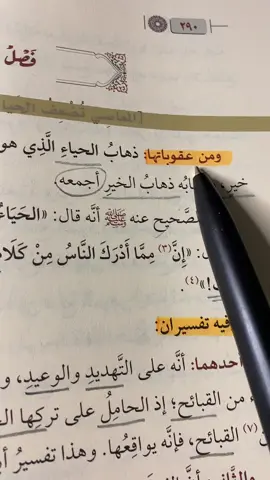 ٢٩٠
فَصْلٌ
[المعاصي تُضعِف الحيا
ومن عقوباتها: ذهابُ الحياءِ الَّذي هو
خير، ذهابُ الخيرِ أجمعه.
الصَّحيح عنه ﷺ أنَّه قال: «الحَيَاءُ
«إِنَّ(٣) مِمَّا أَدْرَكَ النَّاسُ مِنْ كَلَا
!»(٤).
فيه تفسيران:
أحدهما: أنَّه على التَّهديدِ والوعيدِ، و
من القبائحِ؛ إذ الحاملُ على تركِها ال
(٧) القبائحَ، فإنَّه يواقِعُها. وهذا تفسيرُ أ